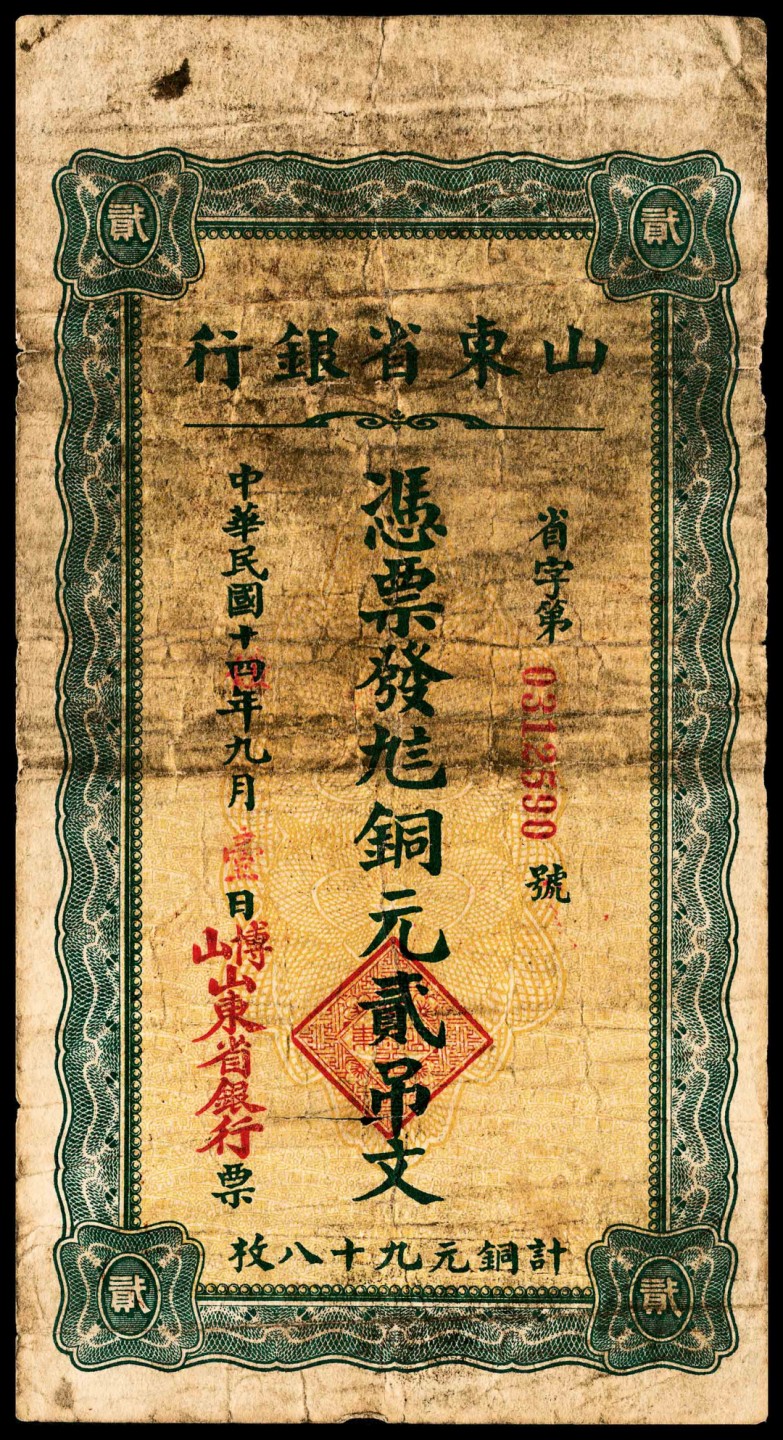 貳 貳
山東省銀行
省字第0312590號
憑票發銅元貳吊文
中華民國十四年九月壹日博山山東省銀行票
計銅元九十八枚
貳 貳